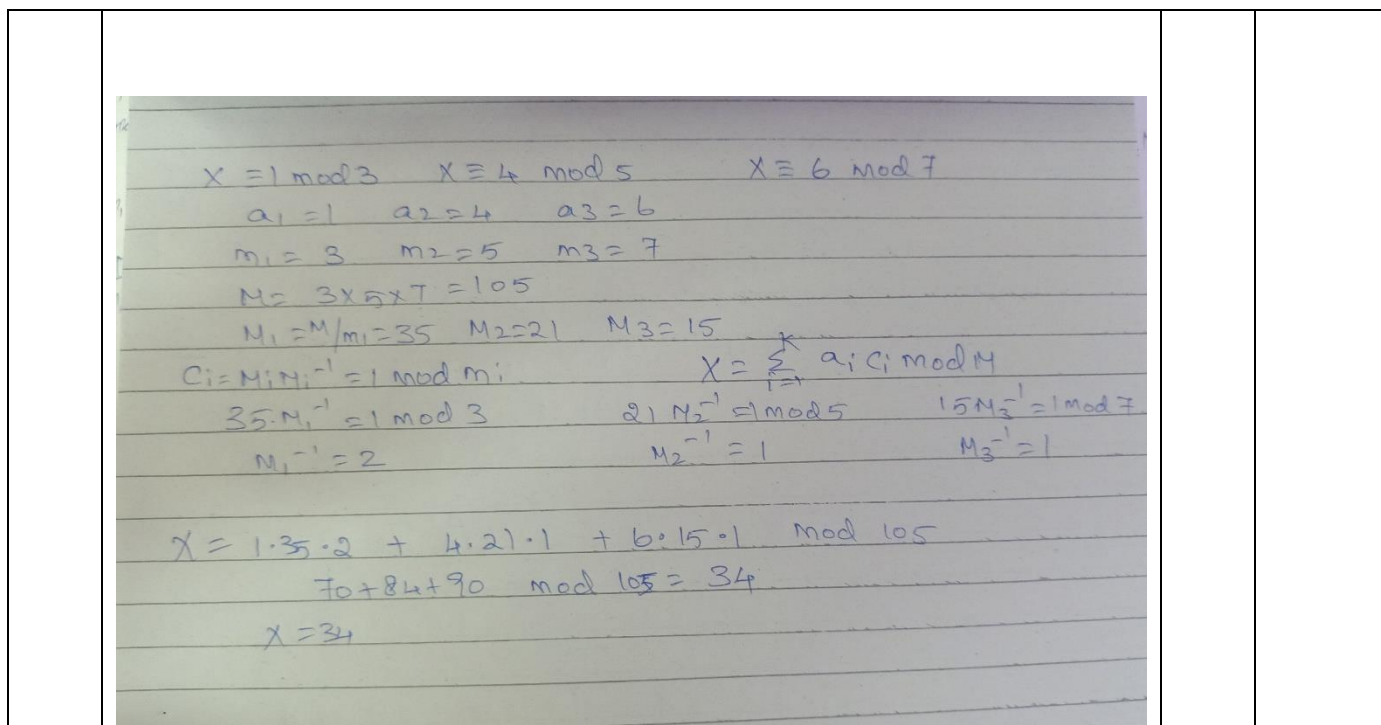 X ≡ 1 mod 3 X ≡ 4 mod 5 X ≡ 6 mod 7
a₁ = 1 a2 = 4 a3 = 6
m₁ = 3 m2 = 5 m3 = 7
M = 3×5×7 = 105
M₁ = M/m₁ = 35 M2 = 21 M3 = 15
Ci = MiMi⁻¹ = 1 mod mi X = Σ_{i=1}^{k} ai ci mod M
35·M₁⁻¹ = 1 mod 3 21 M₂⁻¹ = 1 mod 5 15M₃⁻¹ = 1 mod 7
M₁⁻¹ = 2 M₂⁻¹ = 1 M₃⁻¹ = 1
X = 1·35·2 + 4·21·1 + 6·15·1 mod 105
70+84+90 mod 105 = 34
X = 34